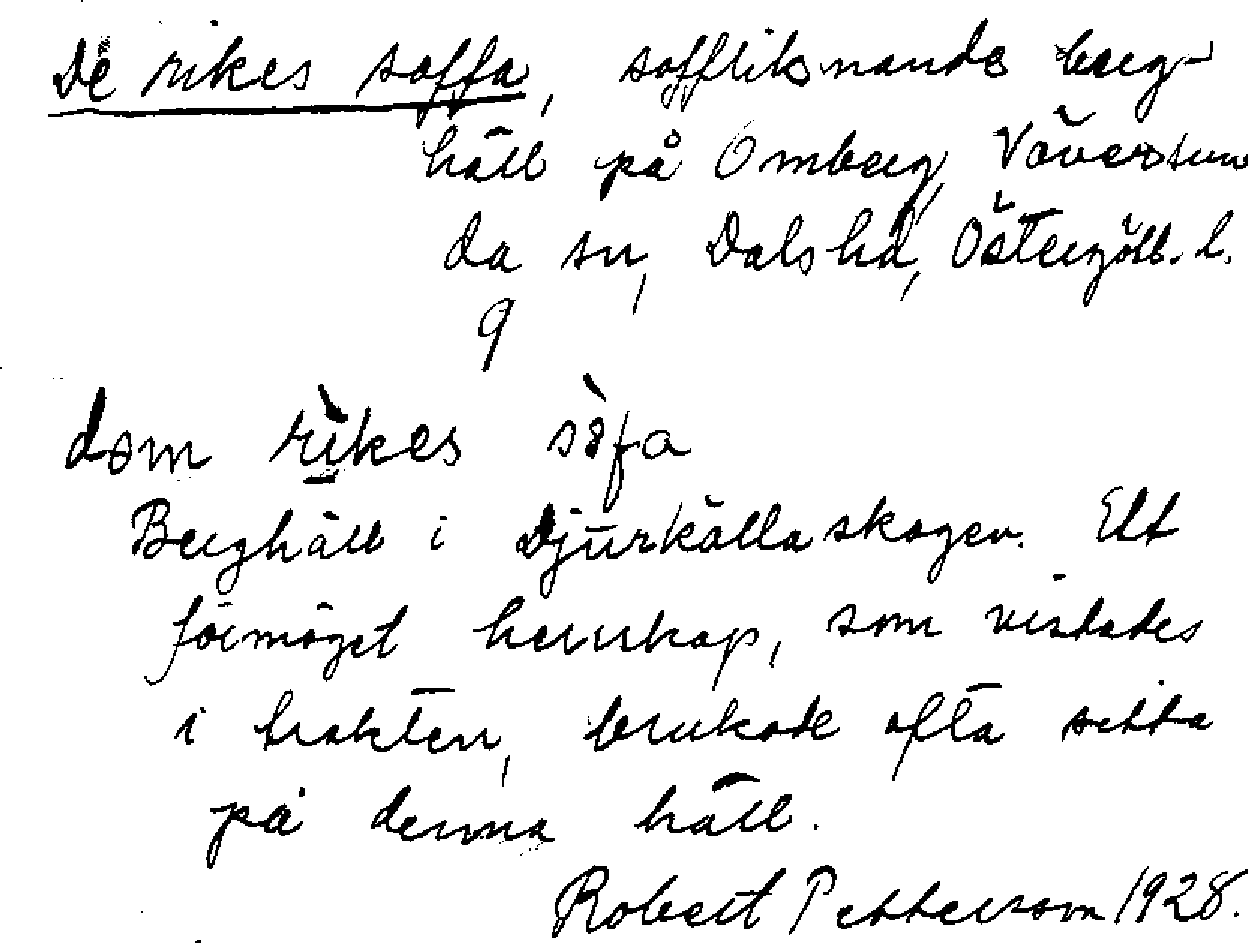 De rikes soffa, soffliknande berg-
häll på Omberg, Väversun
da sn, Dals hd, Östergötl. l.
9
dom rìkes sòfa
Berghäll i Djurkällaskogen. Ett
förmöget herrskap, som vistades
i trakten, brukade ofta sitta
på denna häll.
Robert Pettersson 1928.